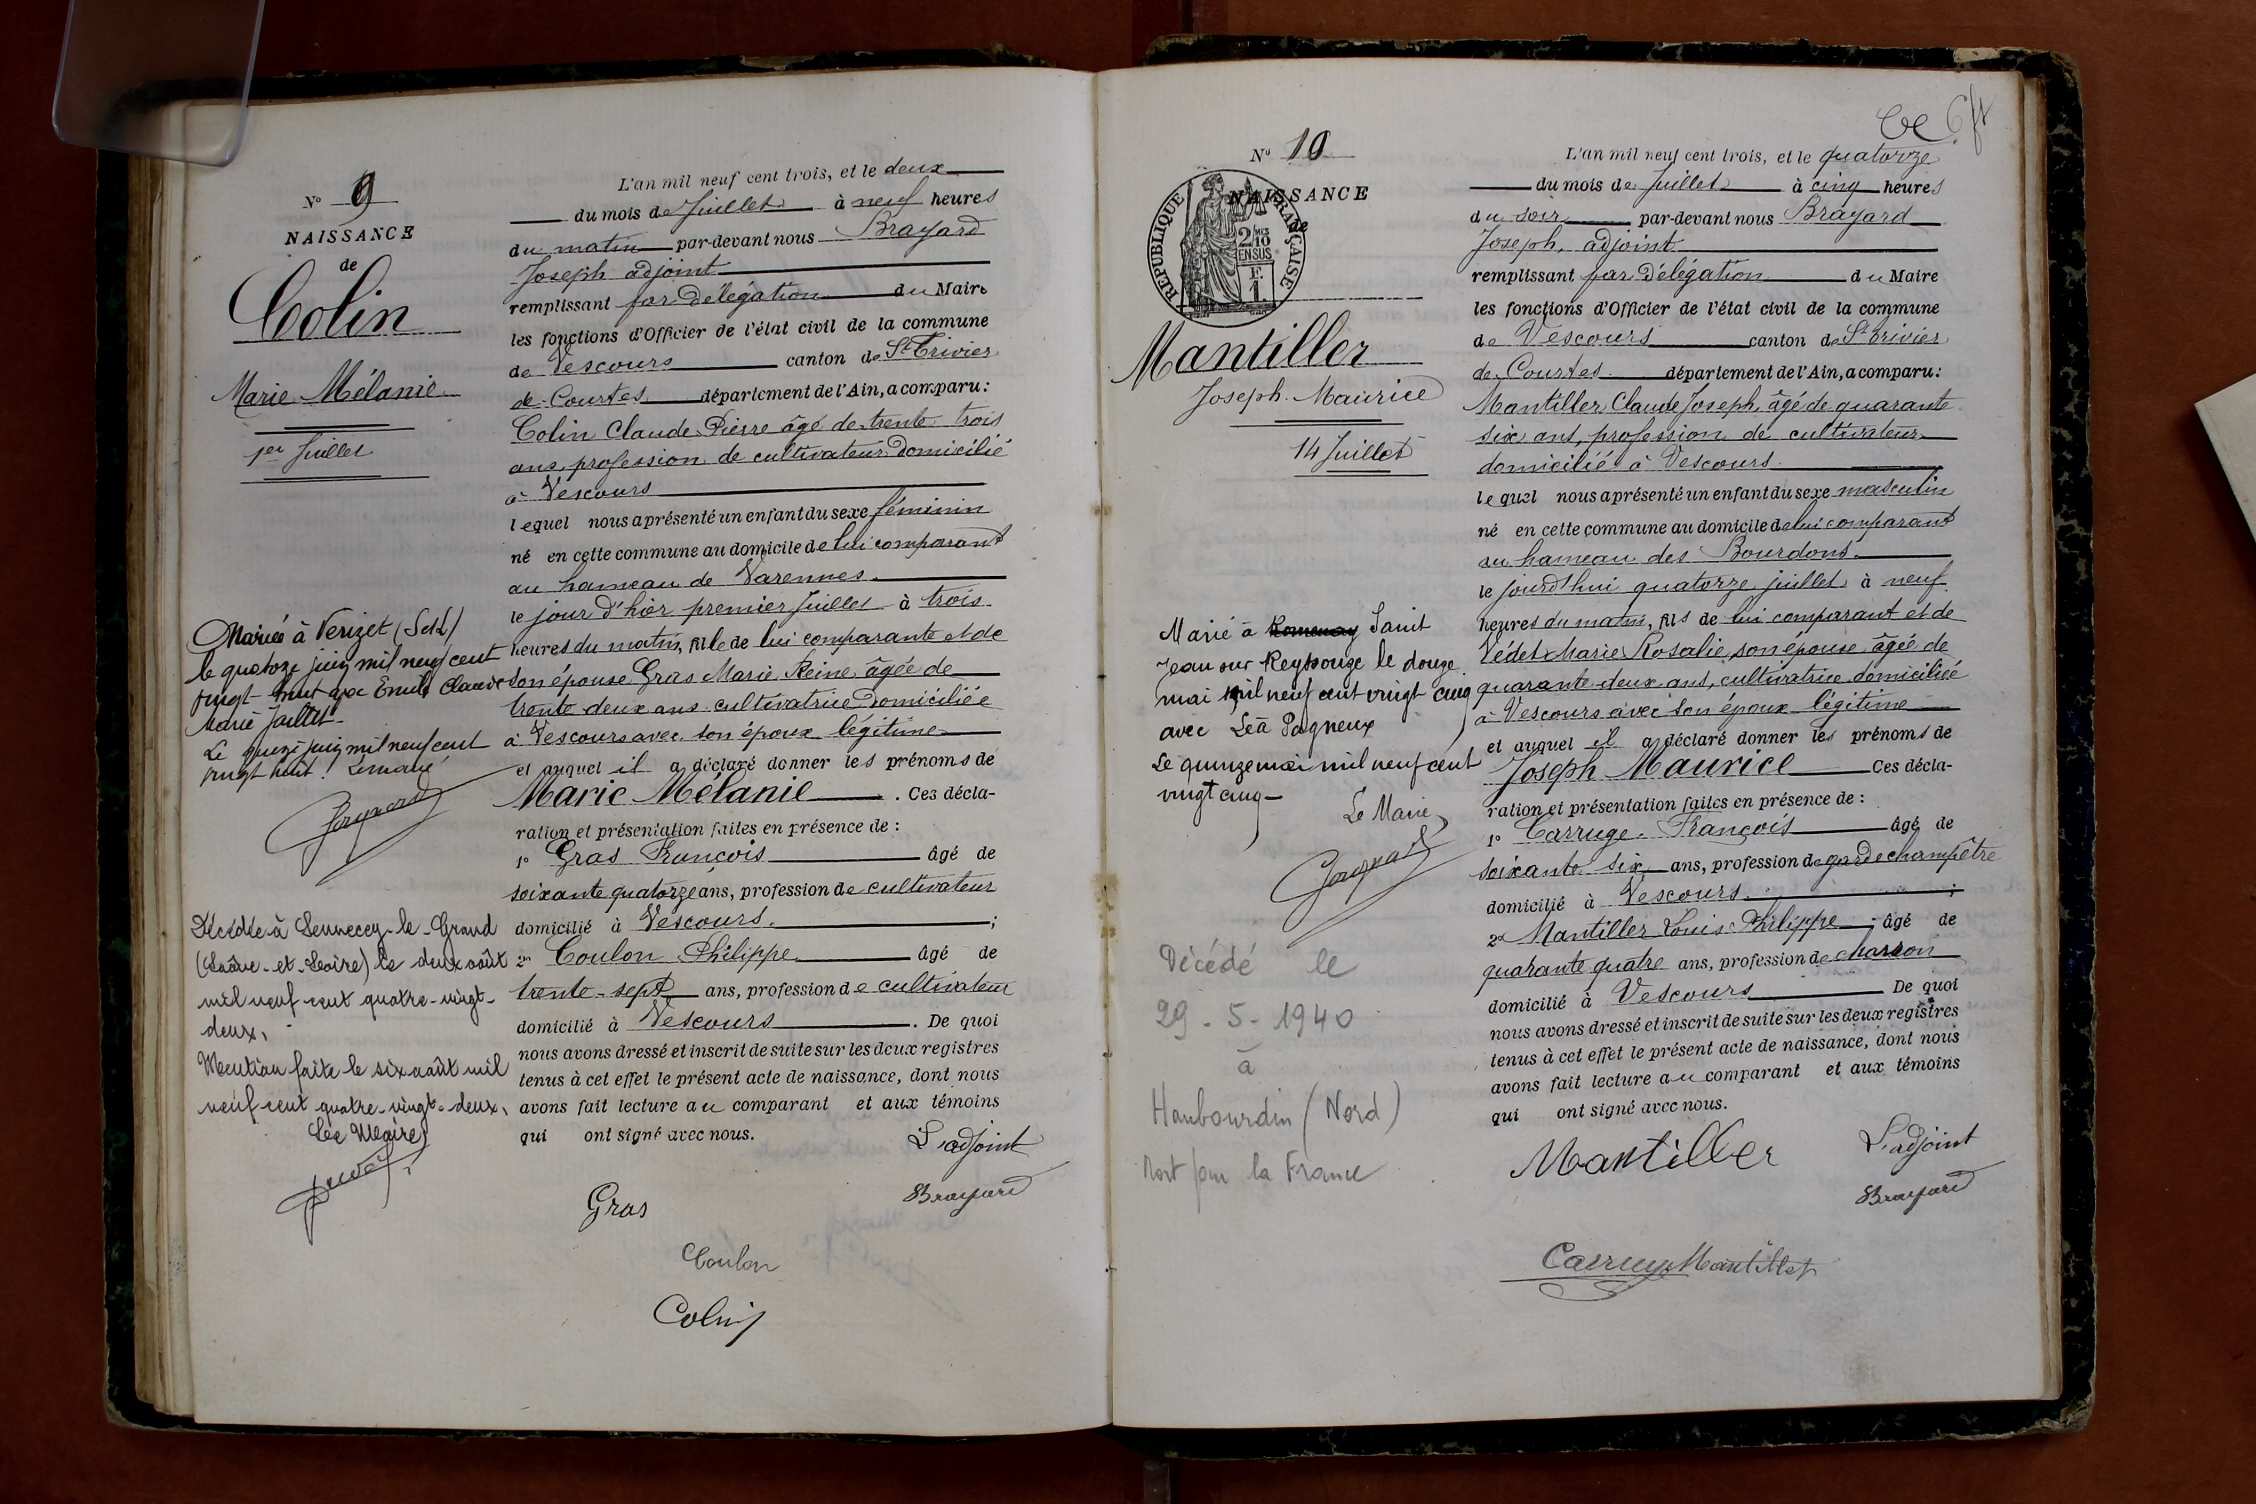 N° 9
NAISSANCE
de
Colin
Marie Mélanie
1er Juillet
Mariée à Verizet (S et L)
le quatorze juin mil neuf cent
vingt-huit avec Emile Claude
Marie Jaillet
Le quinze juin mil neuf cent
vingt huit. Le maire
Décédée à Sennecey-le-Grand
(Saône-et-Loire) le deux août
mil neuf cent quatre-vingt-
deux.
Mention faite le six août mil
neuf cent quatre-vingt-deux.
Le Maire,
L'an mil neuf cent trois, et le deux
du mois de Juillet à neuf heures
du matin par-devant nous Brayard
Joseph adjoint
remplissant par Délégation du Maire
les fonctions d'Officier de l'état civil de la commune
de Vescours canton de St Trivier
de Courtes département de l'Ain, a comparu:
Colin Claude Pierre âgé de trente trois
ans, profession de cultivateur Domicilié
à Vescours
lequel nous a présenté un enfant du sexe féminin
né en cette commune au domicile de lui comparant
au hameau de Varennes.
le jour d'hier premier Juillet à trois
heures du matin, fille de lui comparante et de
son épouse Gras Marie Reine âgée de
trente deux ans cultivatrice Domiciliée
à Vescours avec son époux légitime
et auquel il a déclaré donner les prénoms de
Marie Mélanie . Ces décla-
ration et présentation faites en présence de :
1° Gras François âgé de
soixante quatorze ans, profession de cultivateur
domicilié à Vescours. ;
2° Coulon Philippe âgé de
trente-sept ans, profession de cultivateur
domicilié à Vescours . De quoi
nous avons dressé et inscrit de suite sur les deux registres
tenus à cet effet le présent acte de naissance, dont nous
avons fait lecture au comparant et aux témoins
qui ont signé avec nous.
L'adjoint
Brayard
Gras
Coulon
Colin
N° 10
NAISSANCE
de
RÉPUBLIQUE FRANÇAISE
2/10
EN SUS
F.
1.
Mantiller
Joseph Maurice
14 Juillet
Marié à Romenay Saint
Jean sur Reyssouze le douze
mai mil neuf cent vingt cinq
avec Léa Pagneux
Le quinze mai mil neuf cent
vingt cinq
Le Maire
Décédé le
29-5-1940
à
Haubourdin (Nord)
Mort pour la France
L'an mil neuf cent trois, et le quatorze
du mois de Juillet à cinq heures
du soir par-devant nous Brayard
Joseph, adjoint
remplissant par Délégation du Maire
les fonctions d'Officier de l'état civil de la commune
de Vescours canton de St Trivier
de Courtes département de l'Ain, a comparu:
Mantiller Claude Joseph, âgé de quarante
six ans, profession de cultivateur
domicilié à Vescours
lequel nous a présenté un enfant du sexe masculin
né en cette commune au domicile de lui comparant
au hameau des Bourdons
le jourd'hui quatorze juillet à neuf
heures du matin, fils de lui comparant et de
Védet Marie Rosalie, son épouse âgée de
quarante deux ans, cultivatrice domiciliée
à Vescours avec son époux légitime
et auquel il a déclaré donner les prénoms de
Joseph Maurice Ces décla-
ration et présentation faites en présence de :
1° Carruge François âgé de
soixante six ans, profession de garde champêtre
domicilié à Vescours. ;
2° Mantiller Louis Philippe âgé de
quarante quatre ans, profession de charron
domicilié à Vescours De quoi
nous avons dressé et inscrit de suite sur les deux registres
tenus à cet effet le présent acte de naissance, dont nous
avons fait lecture au comparant et aux témoins
qui ont signé avec nous.
Mantiller
L'adjoint
Brayard
Carruge Mantiller